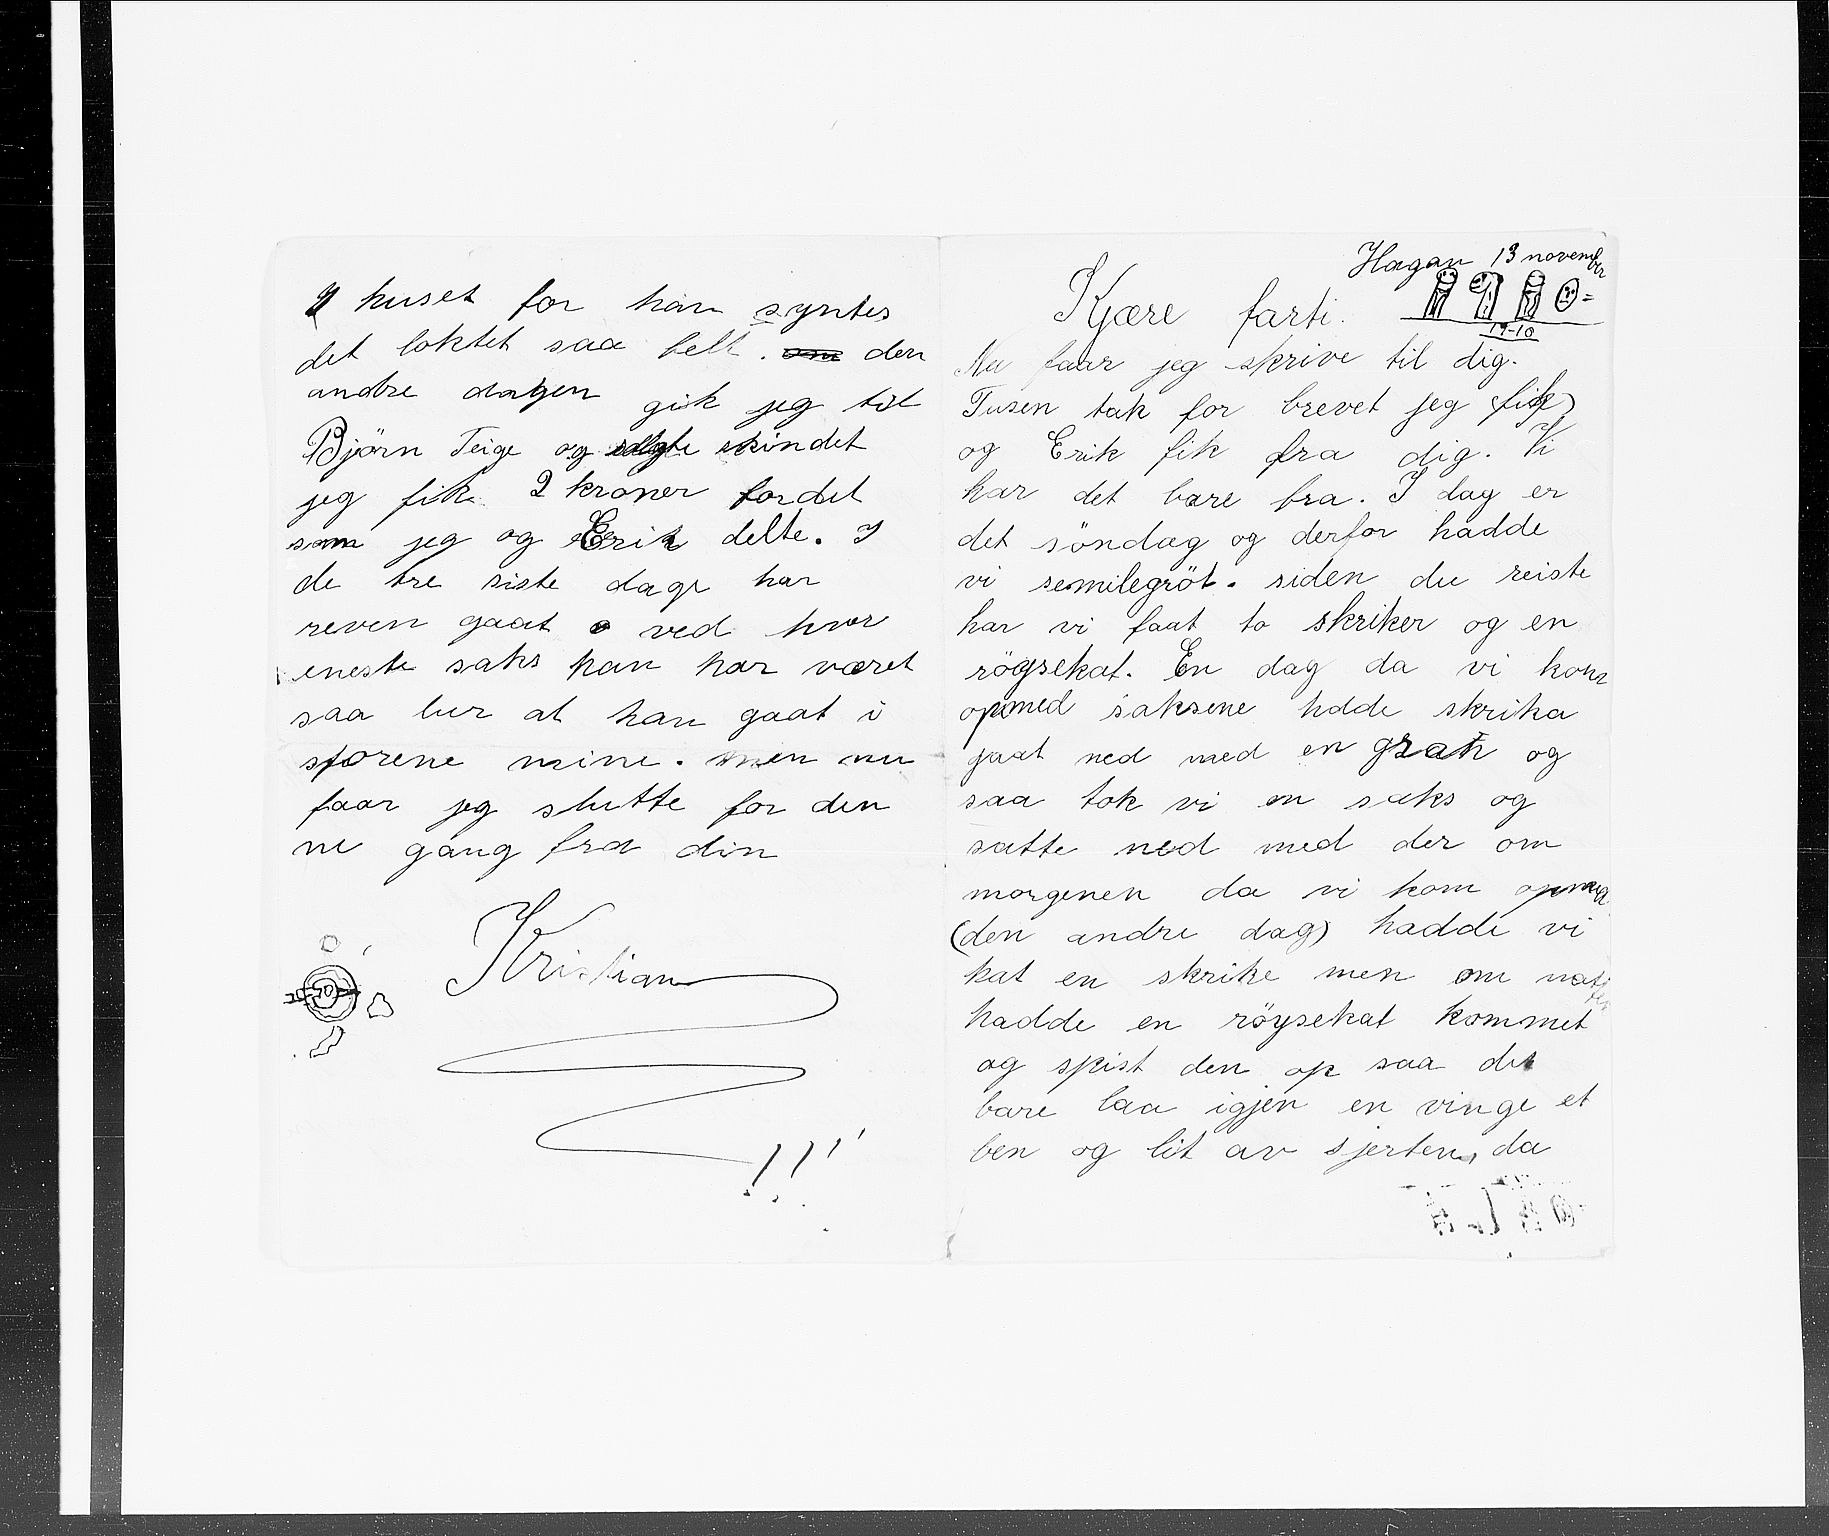 Hagan 13 november
1910=
19-10
Kjære farti.
Nu faar jeg skrive til dig.
Tusen tak for brevet jeg (fik)
og Erik fik fra dig. Vi
har det bare bra. I dag er
det söndag og derfor hadde
vi semilegröt. siden du reiste
har vi faat to skriker og en
röysekat. En dag da vi kom
opmed saksene hdde skrika
gaat ned med en grak og
saa tok vi en saks og
satte ned med der om
morgenen da vi kom opmed
(den andre dag) hadde vi
kat en skrike men om natten
hadde en röysekat kommet
og spist den op saa det
bare laa igjen en vinge et
ben og lit av sjerten, da
I huset for han syntes
det loktet saa felt. om den
andre dagen gik jeg til
Björn Teige og salgte skindet
jeg fik 2 kroner for det
som jeg og Erik delte. I
de tre siste dage har
reven gaat ved hver
eneste saks han har været
saa lur at han gaat i
sporene mine. men nu
faar jeg slutte for den
ne gang fra din
Kristian
!!!